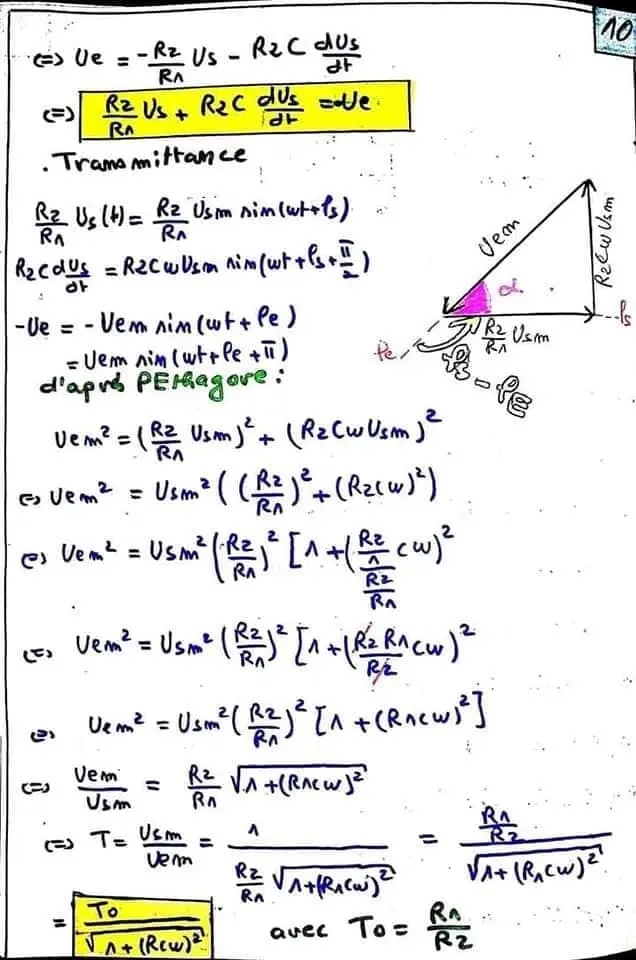 10
(=) Ue = -R2/R1 Us - R2C dUs/dt
(=) R2/R1 Us + R2C dUs/dt = -Ue
. Transmittance
R2/R1 Us(t) = R2/R1 Usm sin(wt+φs)
R2C dUs/dt = R2CwUsm sin(wt+φs+π/2)
-Ue = -Uem sin(wt+φe)
= Uem sin(wt+φe+π)
Uem
R2CwUsm
α
φs
R2/R1 Usm
φe
φs - φE
d'après PEthagore :
Uem² = (R2/R1 Usm)² + (R2CwUsm)²
(=) Uem² = Usm² ((R2/R1)² + (R2Cw)²)
(=) Uem² = Usm² (R2/R1)² [1 + (R2/1/R2/R1 Cw)²
(=) Uem² = Usm² (R2/R1)² [1 + (R2R1Cw/R2)²
(=) Uem² = Usm² (R2/R1)² [1 + (R1Cw)²]
(=) Uem/Usm = R2/R1 √1+(R1Cw)²
(=) T = Usm/Uem = 1/R2/R1 √1+(R1Cw)² = R1/R2/√1+(R1Cw)²
= To/√1+(RCw)² avec To = R1/R2